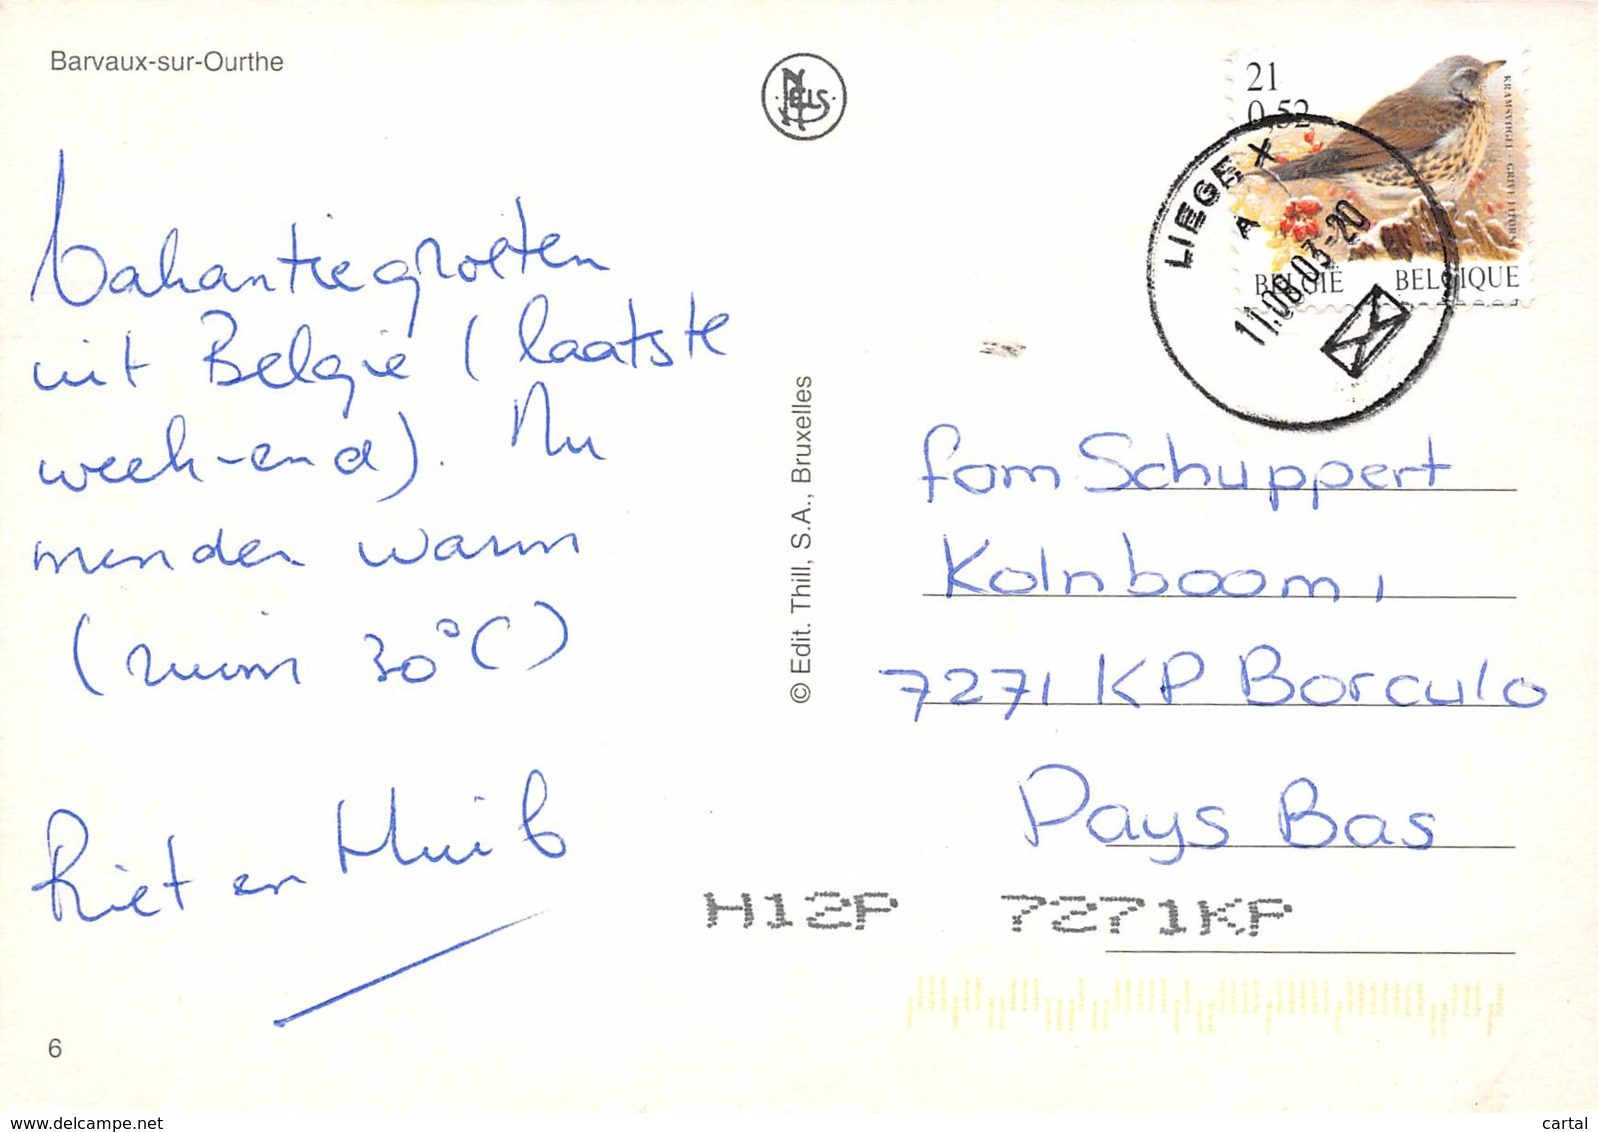 Barvaux-sur-Ourthe
NELS
21
0,52
KRAMSVOGEL - GRIVE LITORNE
BELGIE BELGIQUE
LIEGE X
A
11.08.03-20
Vakantiegroeten
uit Belgie (laatste
week-end). Nu
minder warm
(ruim 30°C)
Riet en Huib
© Edit. Thill, S.A., Bruxelles
fam Schuppert
Kolnboom 1
7271 KP Borculo
Pays Bas
H12P 7271KP
6
www.delcampe.net
cartal